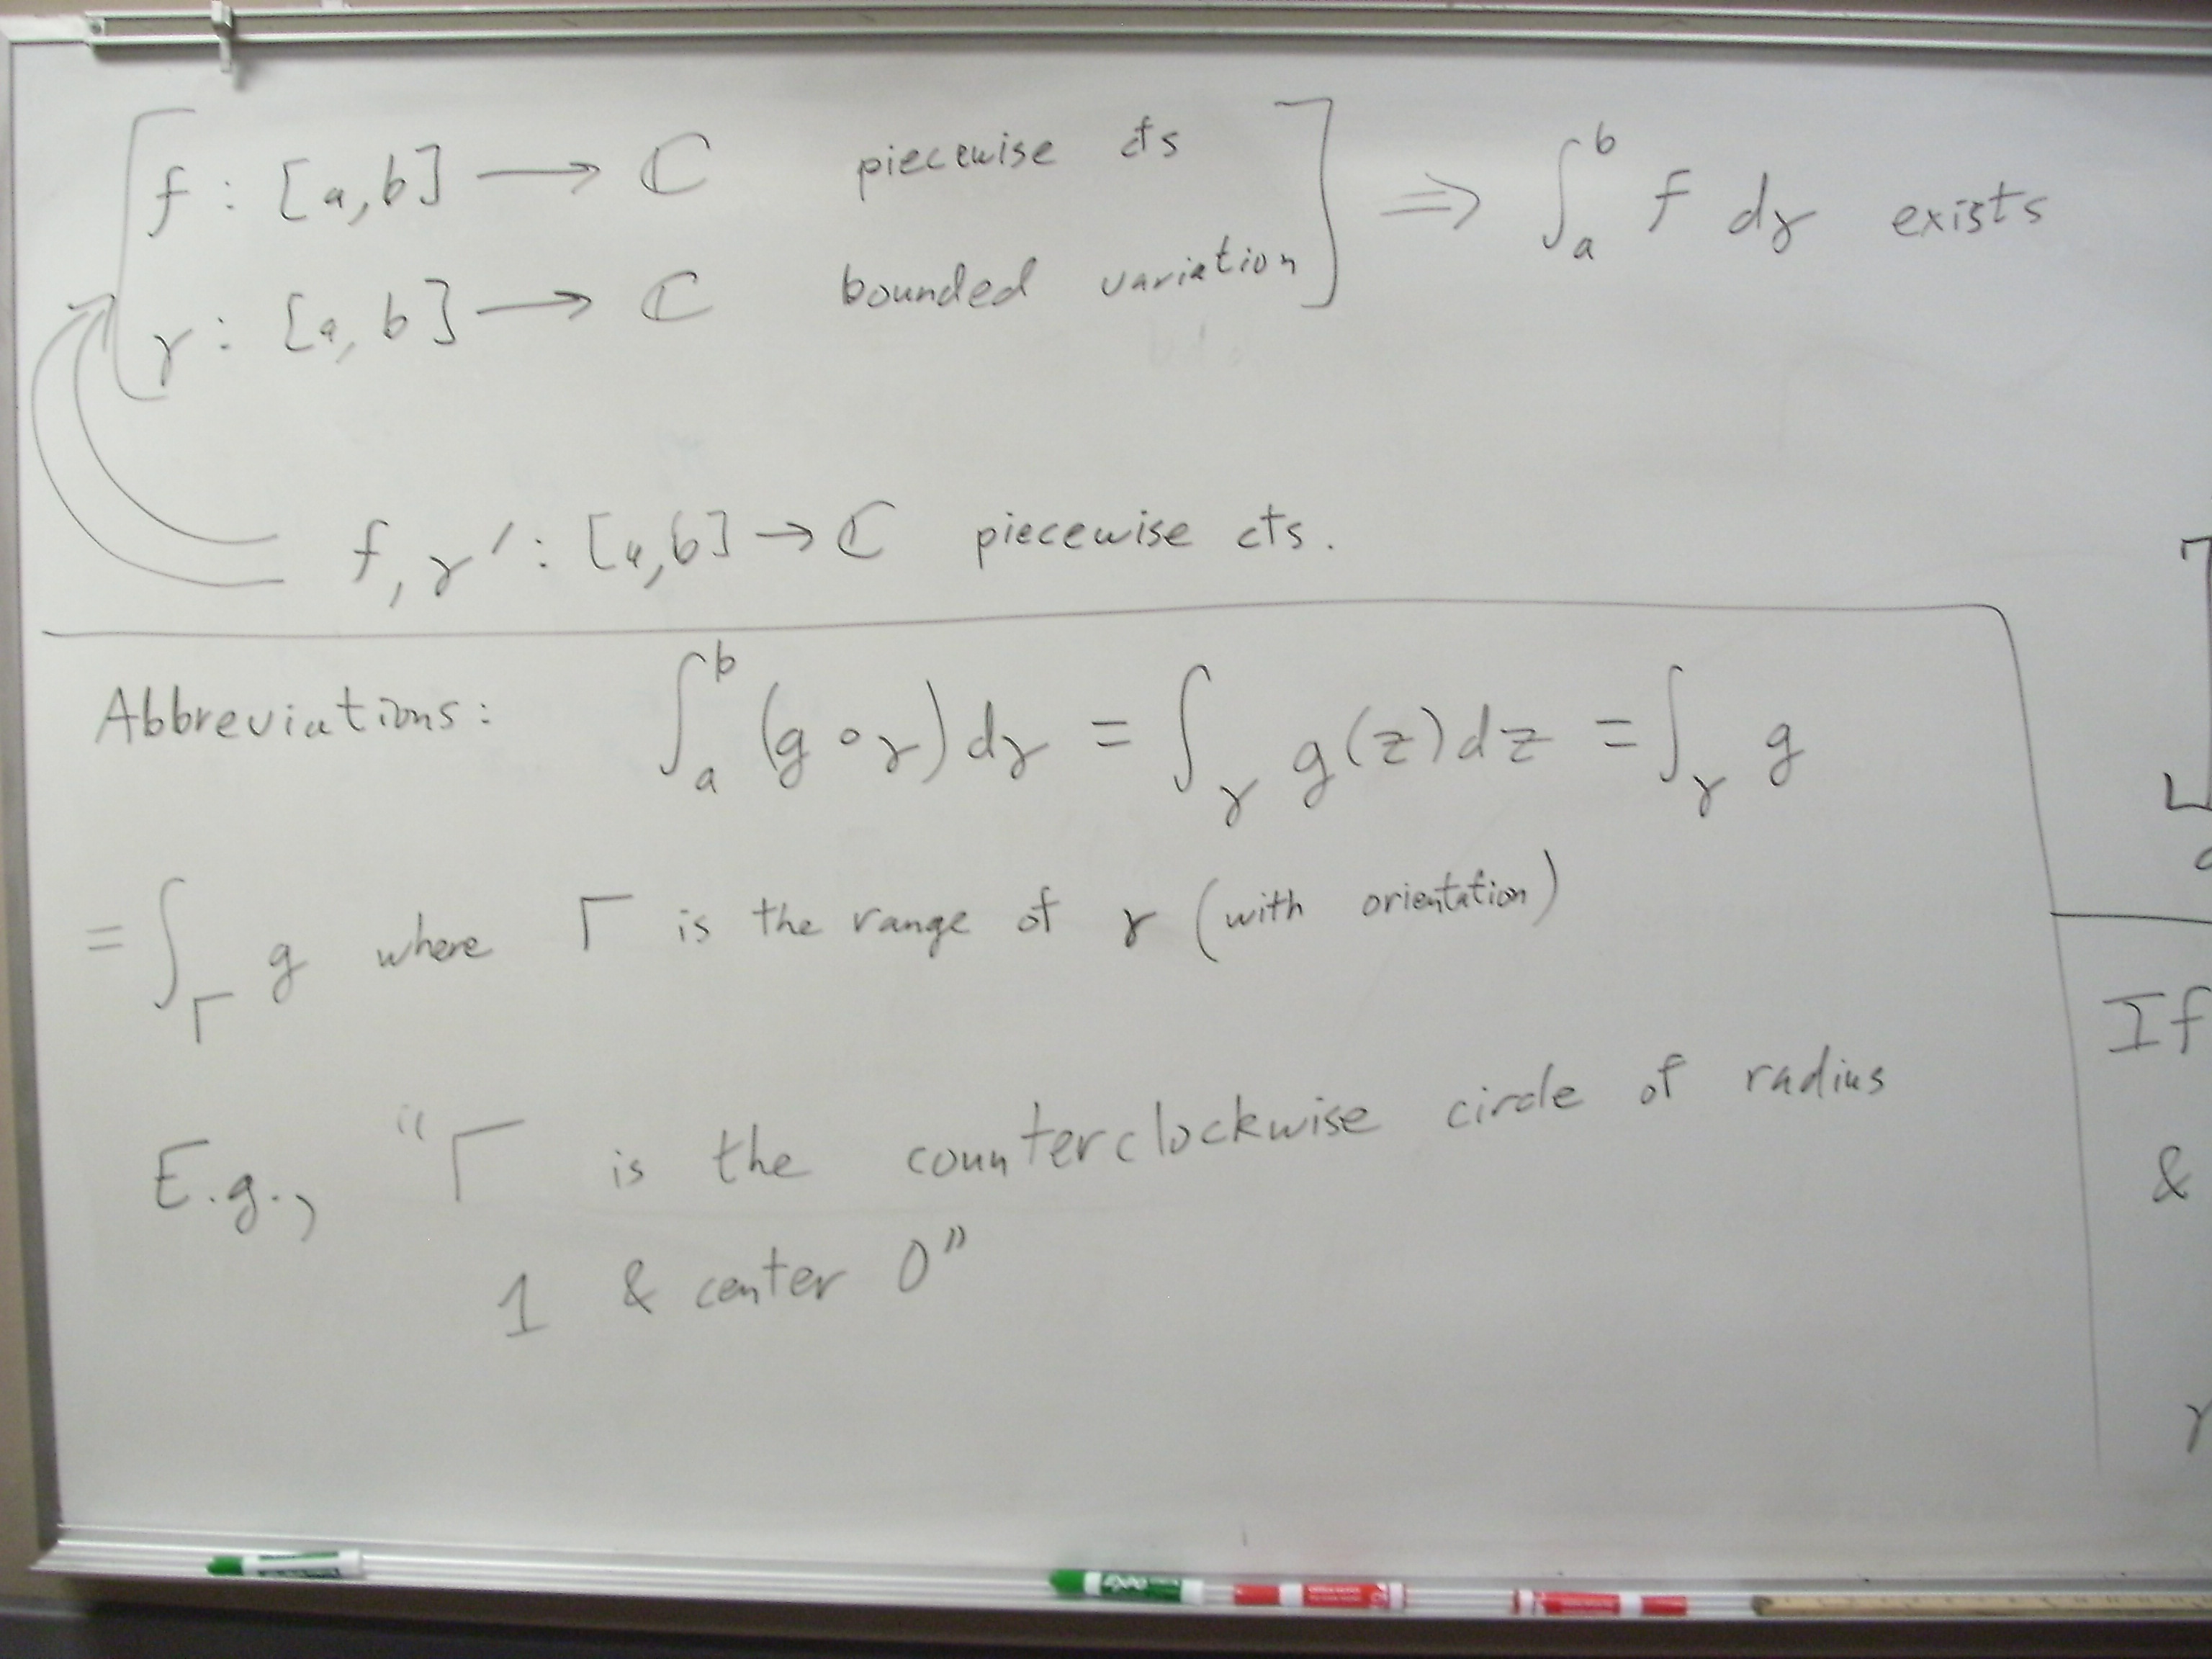 f : [a,b] ⟶ ℂ piecewise cts
γ : [a,b] ⟶ ℂ bounded variation
⟹ ∫_a^b f dγ exists
f, γ′ : [a,b] → ℂ piecewise cts.
Abbreviations: ∫_a^b (g∘γ) dγ = ∫_γ g(z) dz = ∫_γ g
= ∫_Γ g where Γ is the range of γ (with orientation)
E.g., “Γ is the counterclockwise circle of radius
1 & center 0”
If
&
EXPO